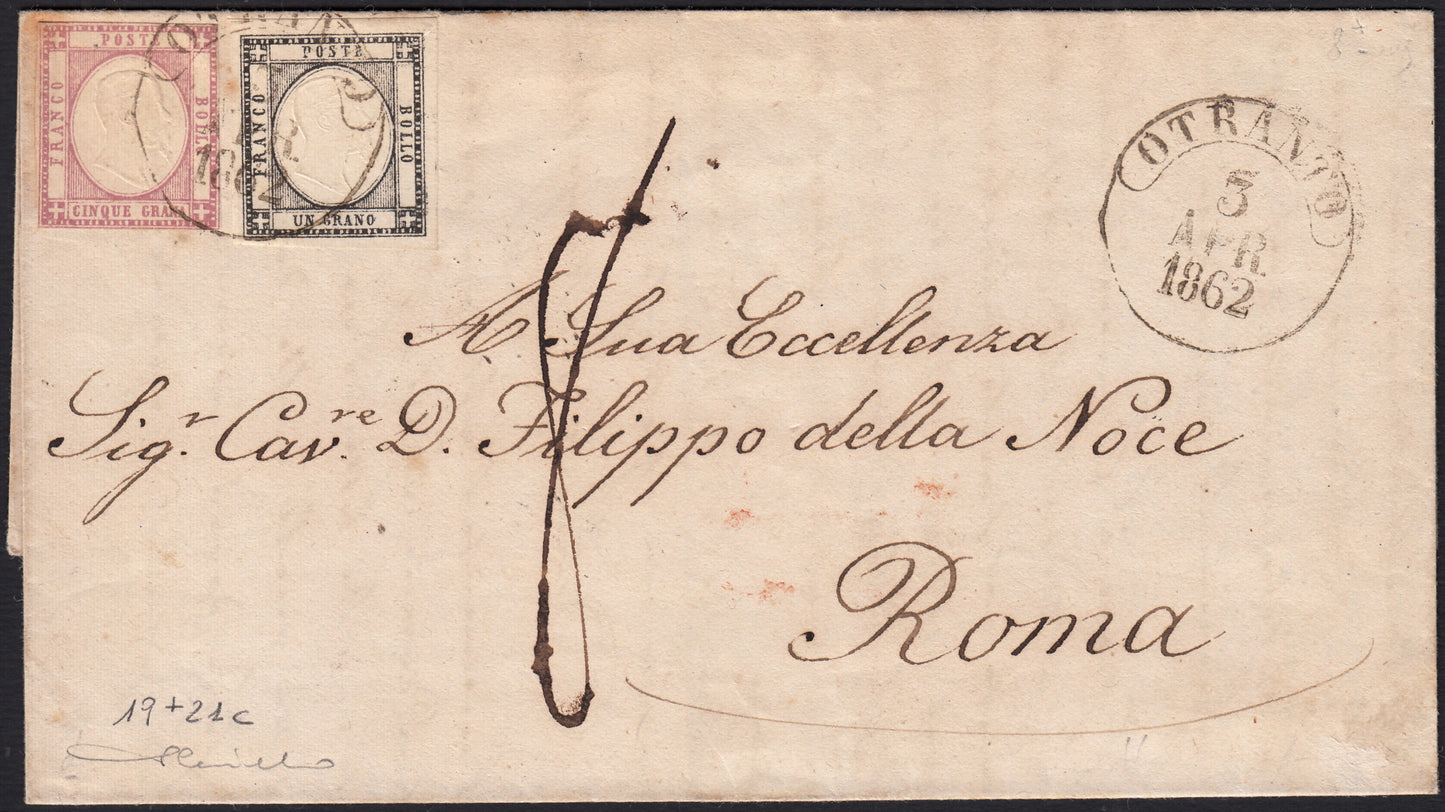 POSTE
FRANCO
BOLLO
CINQUE GRANA
POSTE
FRANCO
BOLLO
UN GRANO
OTRANTO
APR
1862
OTRANTO
3
APR
1862
8
A Sua Eccellenza
Sigr. Cavre. D. Filippo della Noce
Roma
19+21c